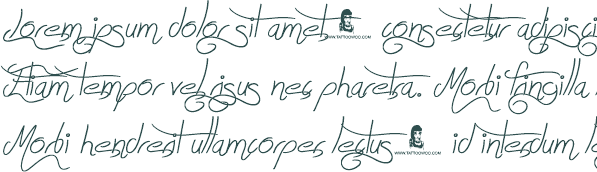 Lorem ipsum dolor sit amet WWW.TATTOOWOO.COM consectetur adipisci
Etiam tempor vel risus nec pharetra. Morbi fringilla
Morbi hendrerit ullamcorper lectus WWW.TATTOOWOO.COM id interdum le